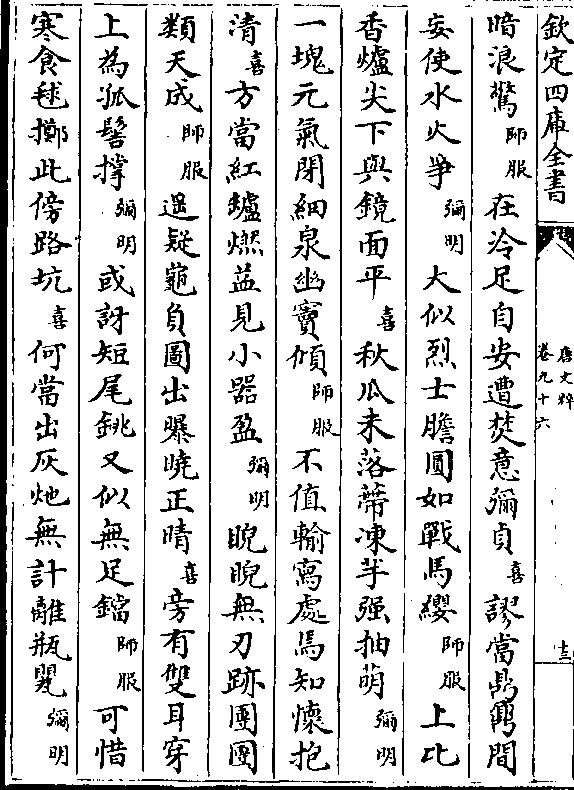 欽定四庫全書
唐文粹
卷九十六
十三
暗浪驚師服在冷足自安遭焚意彌貞喜謬當鼎鼐間
妄使水火爭彌明大似烈士膽圓如戰馬纓師服上比
香爐尖下與鏡面平喜秋瓜未落蔕凍芋强抽萌彌明
一塊元氣閉細泉幽竇傾師服不值輸寫處焉知懷抱
清喜方當紅爐燃益見小器盈彌明睆睆無刃跡團團
類天成師服遥疑龜負圖出曝曉正晴喜旁有雙耳穿
上為孤髻撑彌明或訝短尾銚又似無足鐺師服可惜
寒食毬擲此傍路坑喜何當出灰灺無計離瓶甖彌明